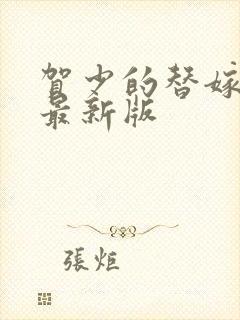 賀少的替嫁
最新版
張炬